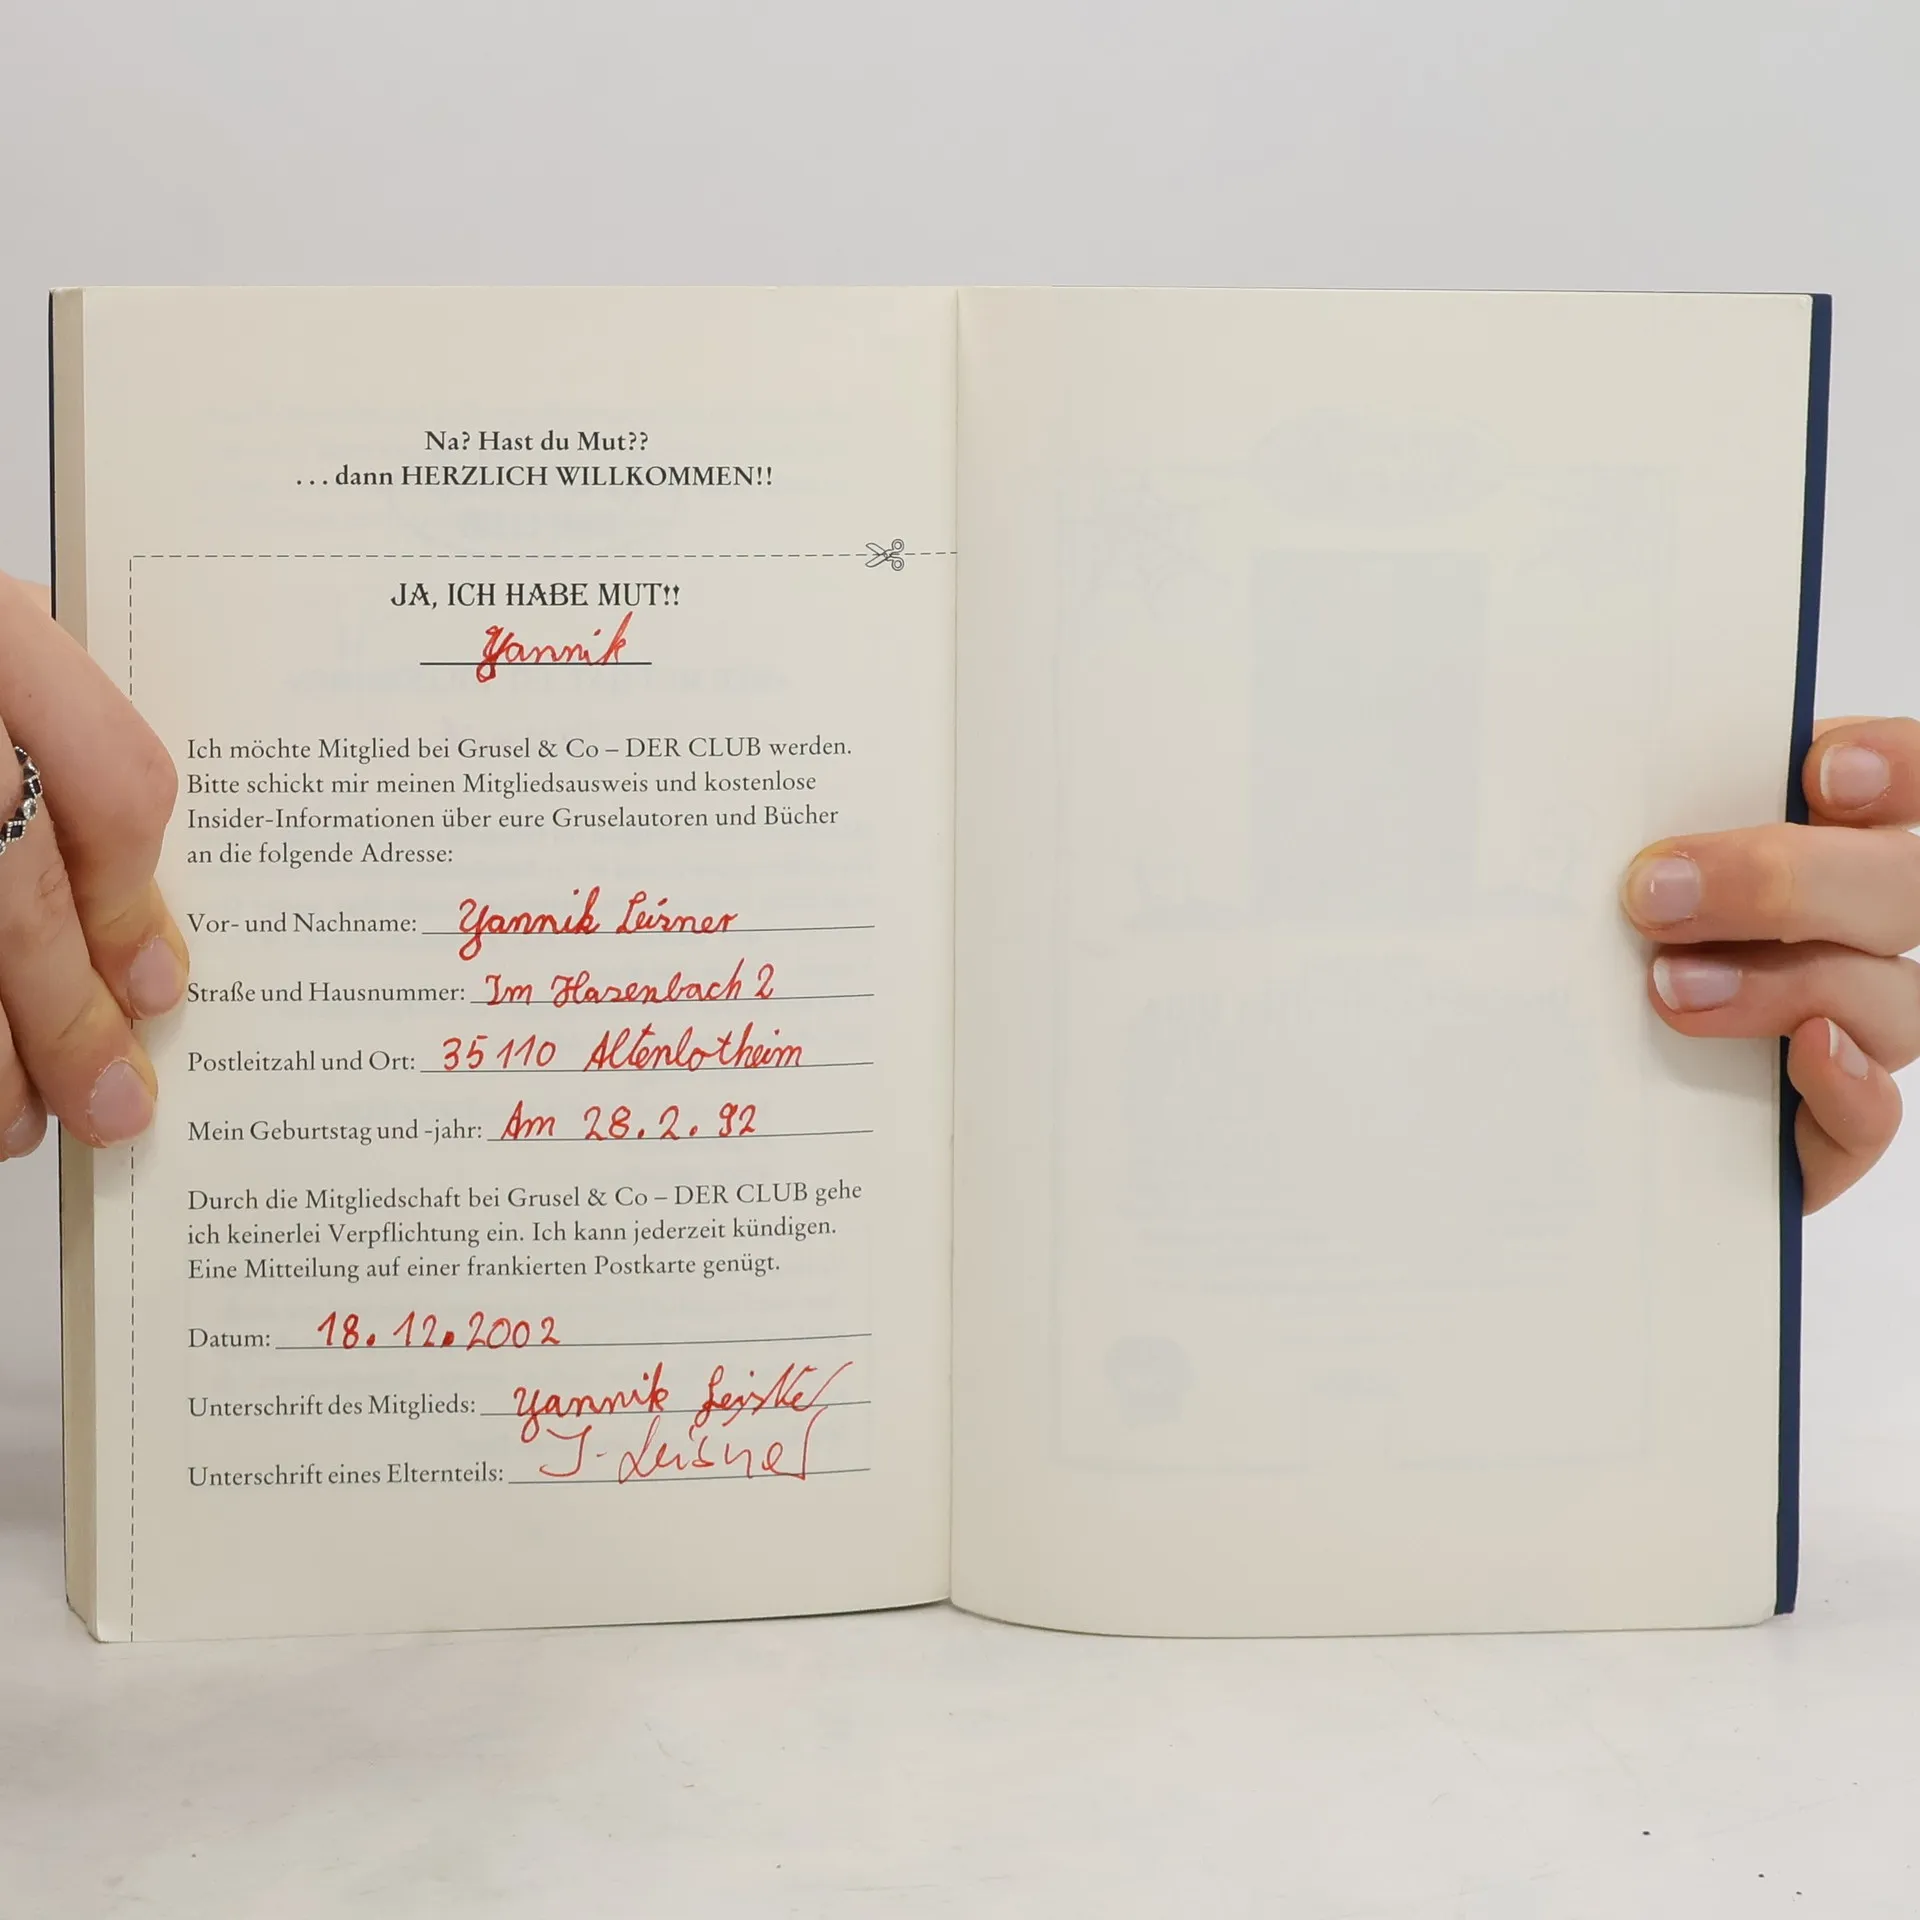 Na? Hast du Mut??
... dann HERZLICH WILLKOMMEN!!
JA, ICH HABE MUT!!
Yannik
Ich möchte Mitglied bei Grusel & Co – DER CLUB werden.
Bitte schickt mir meinen Mitgliedsausweis und kostenlose
Insider-Informationen über eure Gruselautoren und Bücher
an die folgende Adresse:
Vor- und Nachname: Yannik Leisner
Straße und Hausnummer: Im Hasenbach 2
Postleitzahl und Ort: 35110 Altenlotheim
Mein Geburtstag und -jahr: Am 28.2.92
Durch die Mitgliedschaft bei Grusel & Co – DER CLUB gehe
ich keinerlei Verpflichtung ein. Ich kann jederzeit kündigen.
Eine Mitteilung auf einer frankierten Postkarte genügt.
Datum: 18.12.2002
Unterschrift des Mitglieds: Yannik
Unterschrift eines Elternteils: J. Leisner